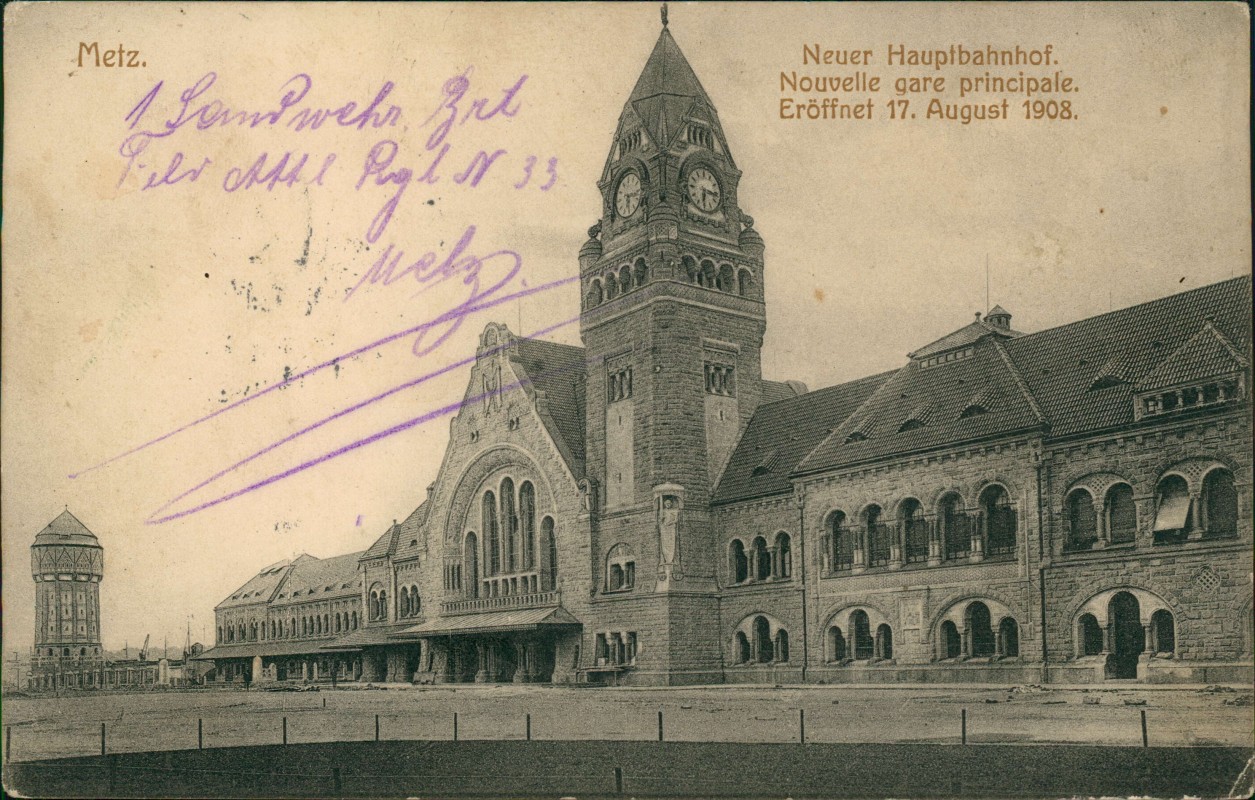 Metz.
Neuer Hauptbahnhof.
Nouvelle gare principale.
Eröffnet 17. August 1908.
1 Landwehr Brt
Feld Attl Rgt N 33
Metz